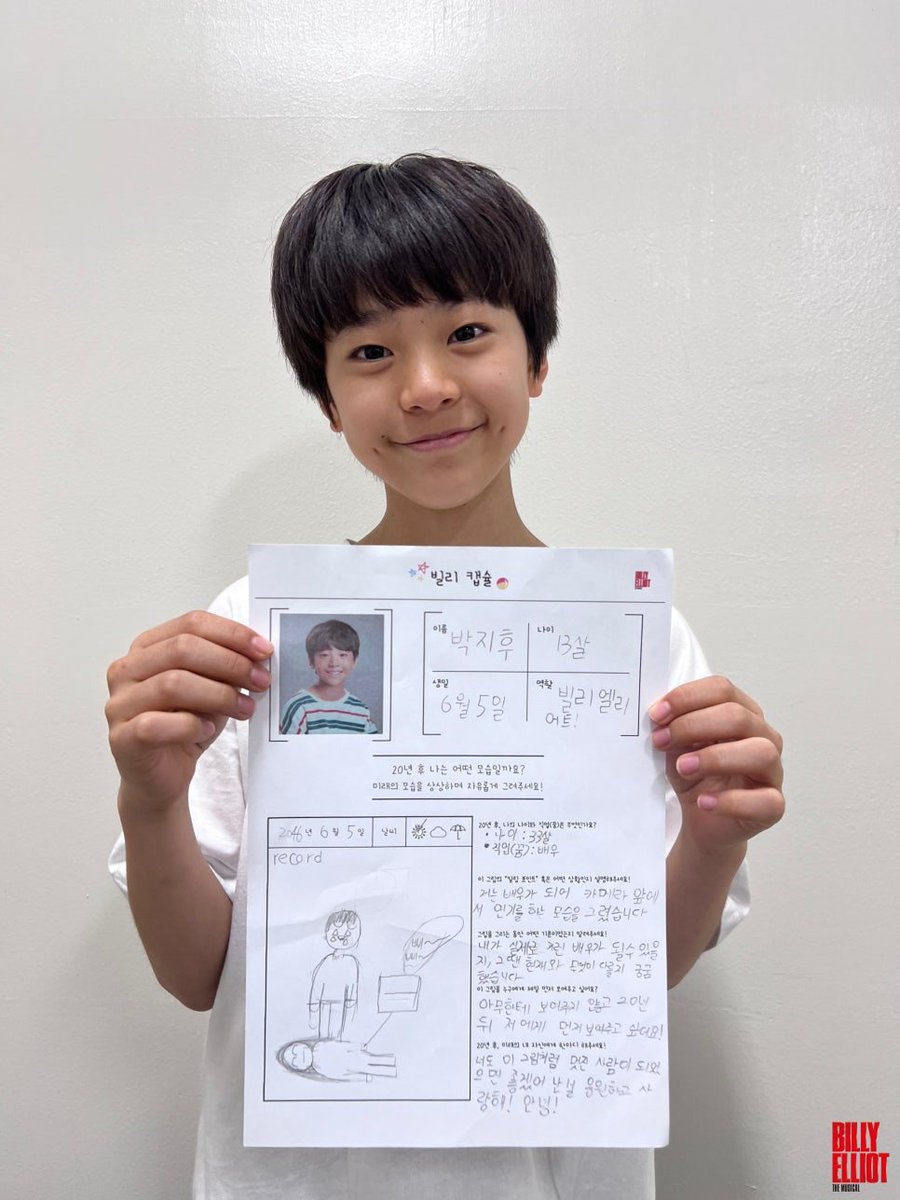 빌리 캡슐
이름
박지후
나이
13살
생일
6월 5일
역할
빌리 엘리
어트!
20년 후 나는 어떤 모습일까요?
미래의 모습을 상상하며 자유롭게 그려주세요!
2046년 6월 5일 날씨
record
20년 후, 나의 나이와 직업(꿈)은 무엇인가요?
• 나이 : 33살
• 직업(꿈) : 배우
이 그림의 "킬링 포인트" 혹은 어떤 상황인지 설명해주세요!
저는 배우가 되어 카메라 앞에
서 연기를 하는 모습을 그렸습니다
그림을 그리는 동안 어떤 기분이었는지 알려주세요!
내가 실제로 커서 배우가 될수 있을
지, 그땐 현재와 무엇이 다를지 궁금
했습니다
이 그림을 누구에게 제일 먼저 보여주고 싶어요?
아무한테 보여주지 않고 20년
뒤 저에게 먼저 보여주고 싶어요!
20년 후, 미래의 내 자신에게 한마디 해주세요!
너도 이 그림처럼 멋진 사람이 되었
으면 좋겠어 난 널 응원하고 사
랑해! 안녕!
BILLY
ELLIOT
THE MUSICAL